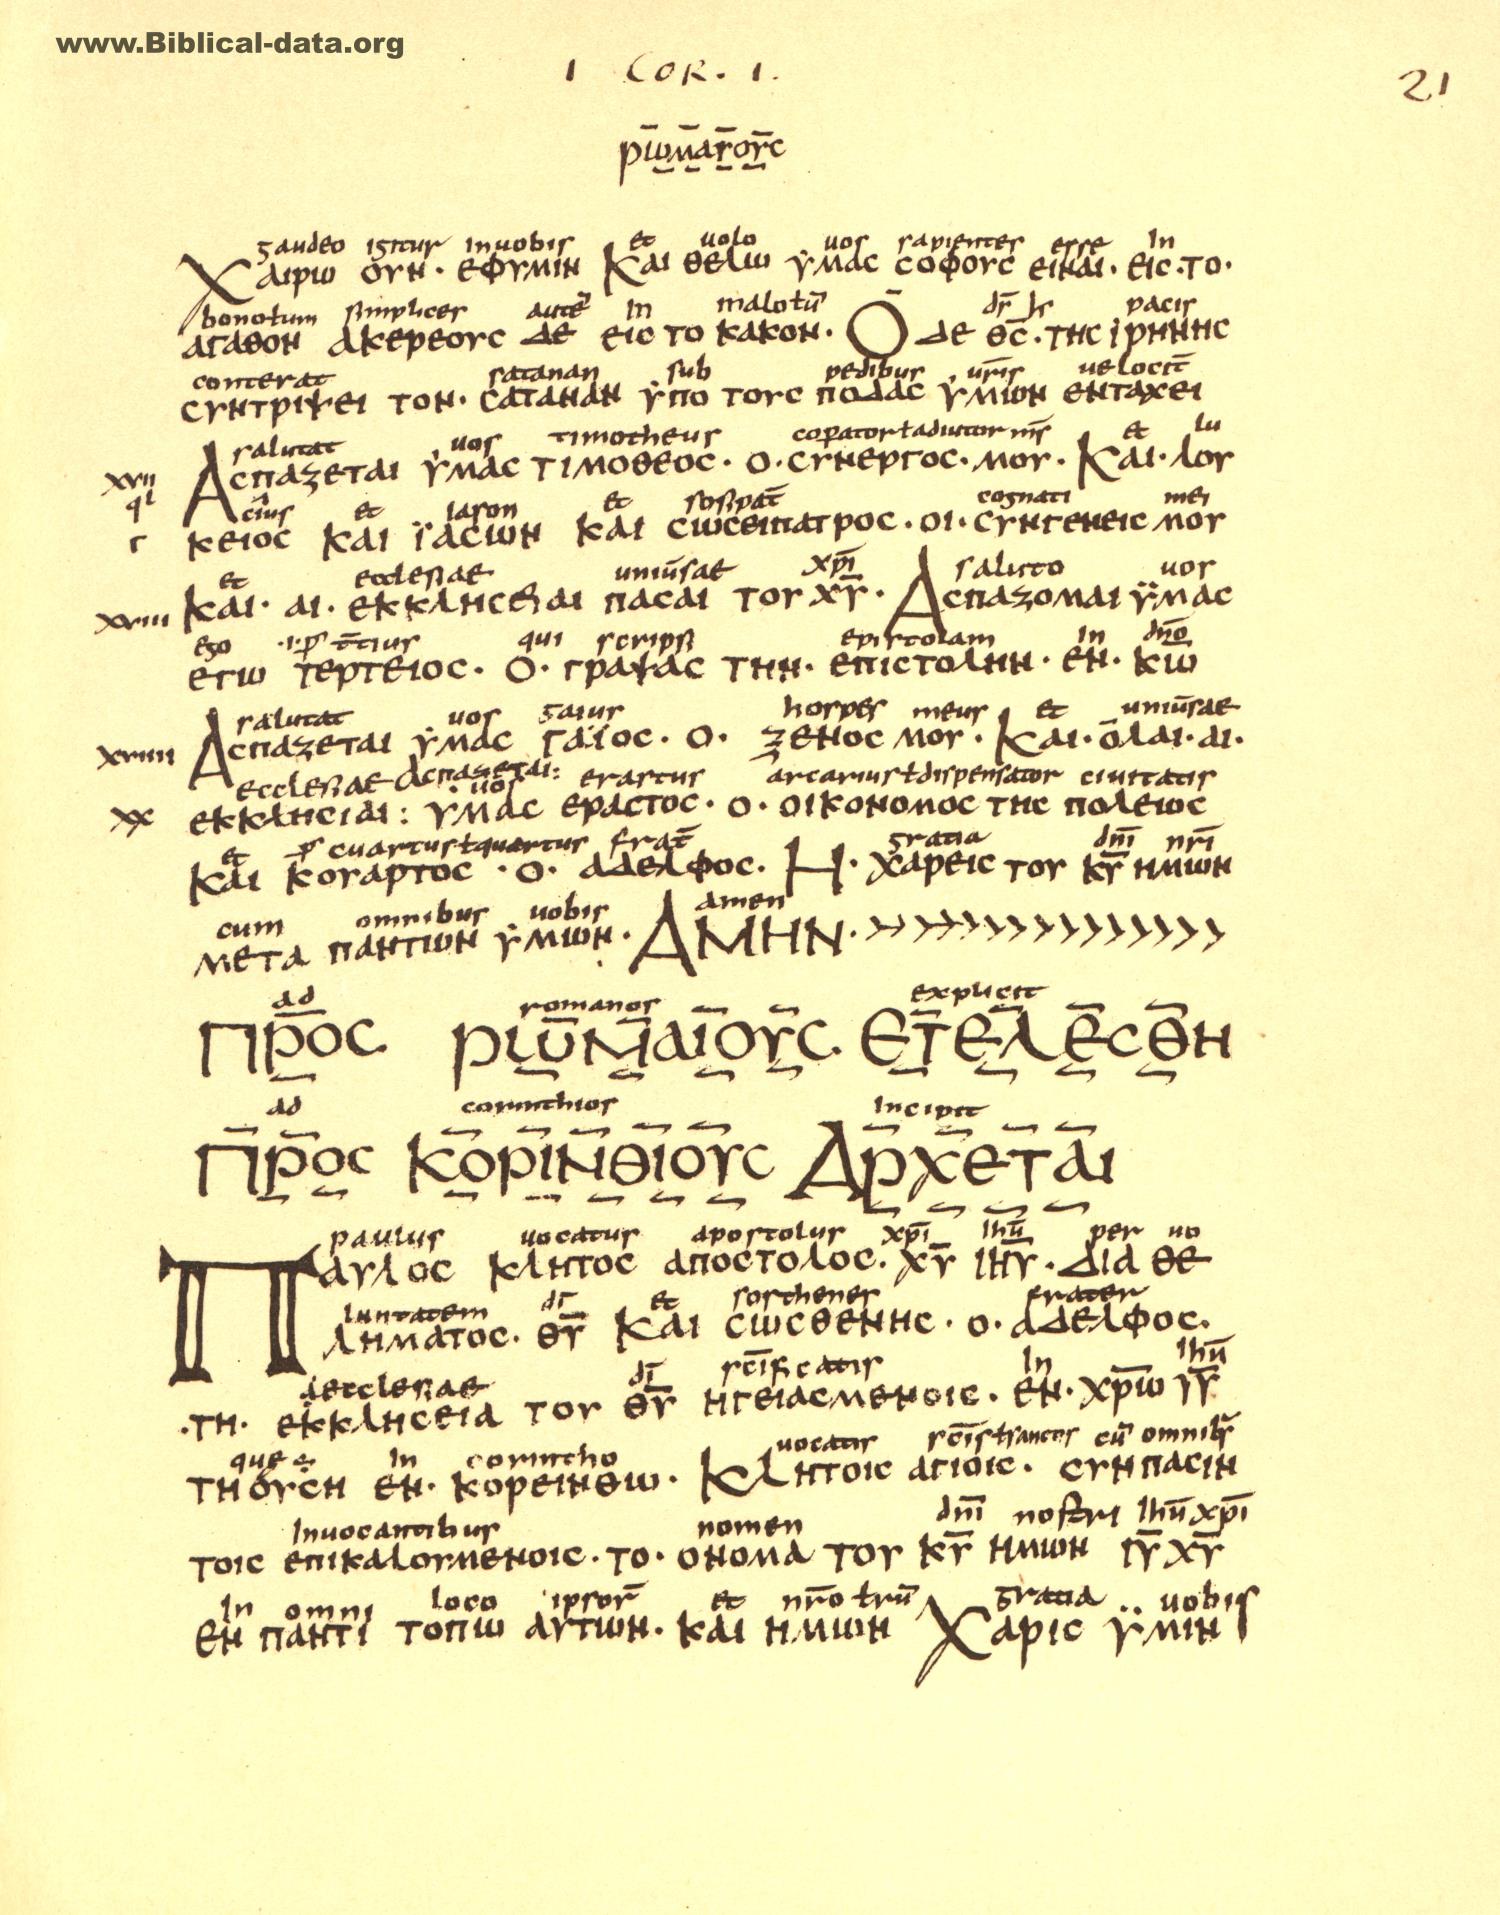 www.Biblical-data.org
1 COR. 1.
21
ρωμαγογς
gaudeo igitur inuobis et uolo uos sapientes esse in
Χαιρω ουν · εφυμιν Και θελω ϋμας σοφους ειναι · εις · το ·
simplices in pacis
αγαθον ακερεους δε εις το κακον · Ο δε θ̅ς̅ · της ιρηνης
conterat satanan sub pedibus ur̅is
συντριψει τον · σαταναν ϋπο τους ποδας ϋμων ενταχει
salutat uos timotheus et lu
xvii Ασπαζεται ϋμας τιμοθεος · ο · συνεργος · μου · Και · λου
cius et iason et cognati mei
κειος και ϊασων και σωσειπατρος · οι · συνγενεις μου
et ecclesiae uniu̅sae xp̅i saluto uos
xviii και · αι · εκκλησειαι πασαι του χ̅υ̅ · Ασπαζομαι ϋμας
ego qui scripsi epistolam in dn̅o
εγω τερτειος · ο · γραψας την · επιστολην · εν · κ̅ω̅
salutat uos gaius hospes meus et uniu̅sae
xviiii Ασπαζεται ϋμας γαϊος · ο · ξενος μου · Και · ολαι · αι ·
ecclesiae Ασπαζεται: uos erastus arcarius ł dispensator ciuitatis
xx εκκλησιαι : ϋμας εραστος · ο · οικονομος της πολεως
et cuartus ł quartus frat̅ gratia dn̅i nr̅i
και κουαρτος · ο · αδελφος · Η · χαρεις του κ̅υ̅ ημων
cum omnibus uobis amen
μετα παντων ϋμων · ΑΜΗΝ ·
ad romanos explicit
Προς ρωμαιους · ετελεσθη
ad corinthios incipit
Προς κορινθιους Αρχεται
paulus uocatus apostolus xp̅i ihu̅ per uo
Παυλος κλητος αποστολος · χ̅υ̅ ι̅η̅υ̅ · Δια θε
luntatem di̅ et sosthenes frater
ληματος · θ̅υ̅ Και σωσθενης · ο · αδελφος ·
ecclesiae di̅ in ihu̅
· τη · εκκλησεια του θ̅υ̅ ηγειασμενοις · εν · χρ̅ω ι̅υ̅
que in corintho uocatis cu̅
τη ουση εν · κορεινθω · Κλητοις αγιοις · συν πασιν
inuocantibus nomen dn̅i nostri ihu̅ xp̅i
τοις επικαλουμενοις · το · ονομα του κ̅υ̅ ημων ι̅υ̅ χ̅υ̅
in omni loco ipsor̅ et gratia uobis
εν παντι τοπω αυτων · και ημων Χαρις ϋμιν